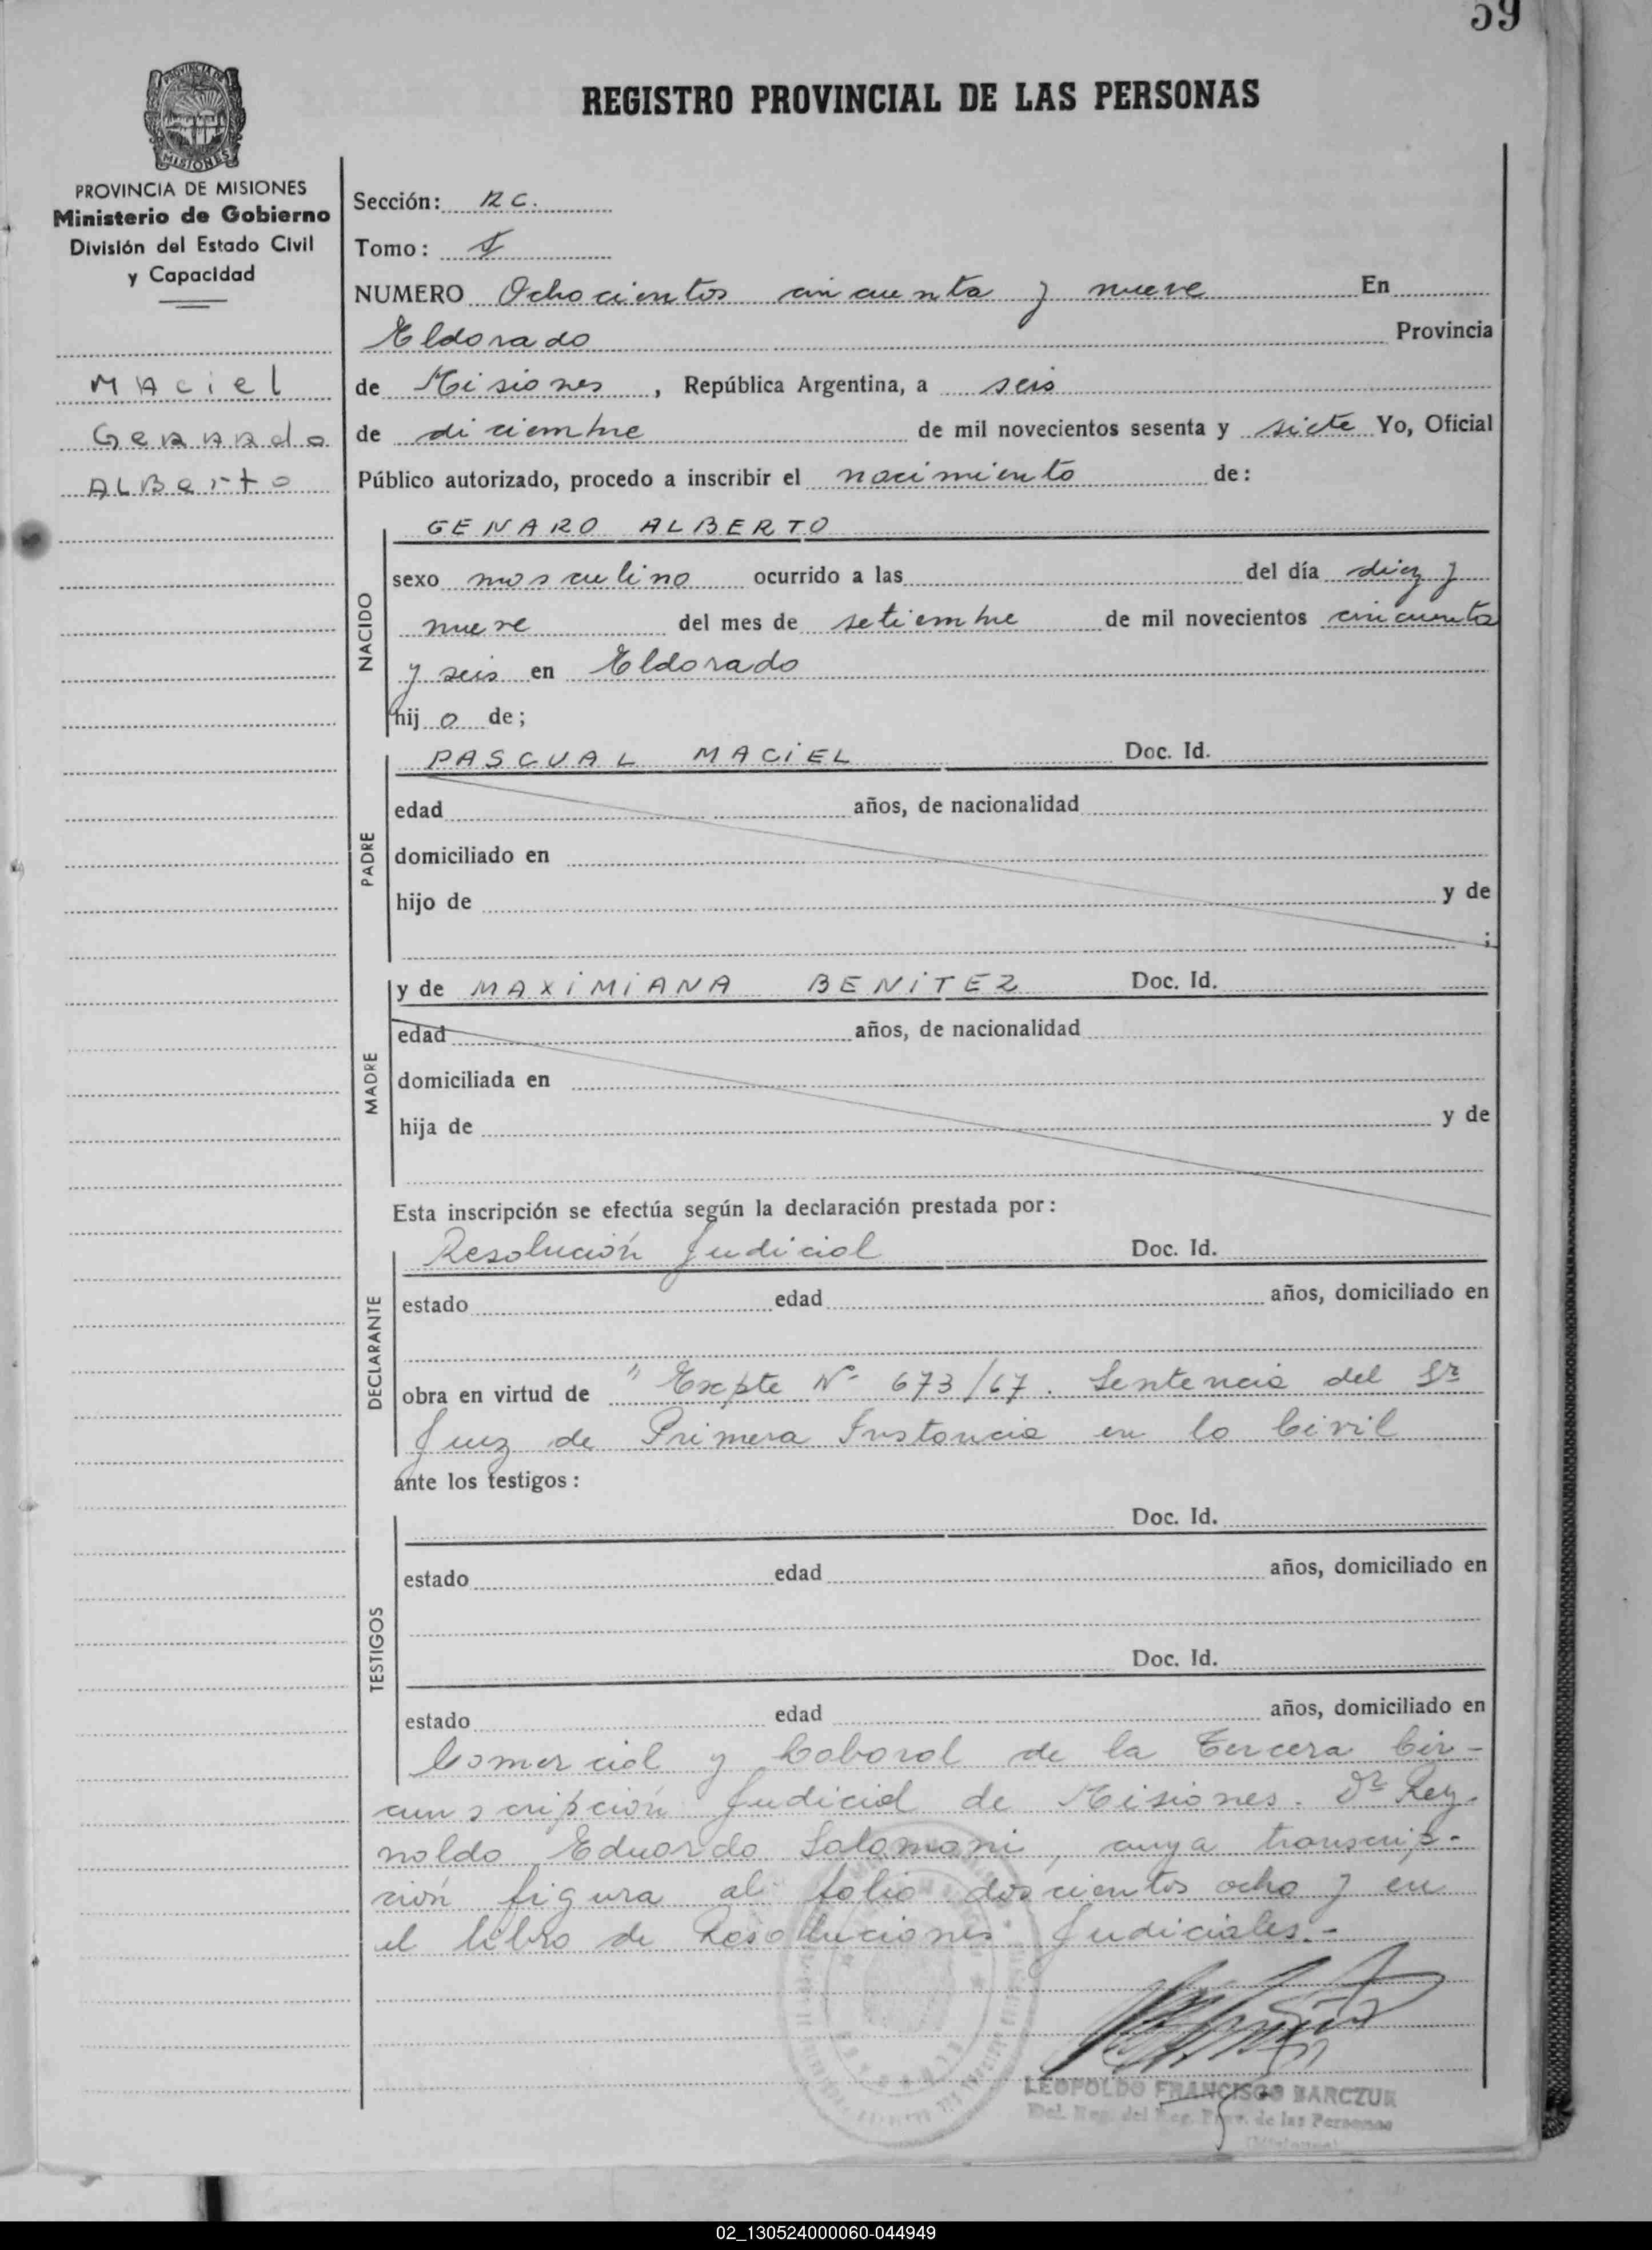 59
REGISTRO PROVINCIAL DE LAS PERSONAS
PROVINCIA DE MISIONES
Ministerio de Gobierno
División del Estado Civil
y Capacidad
Maciel
Genando
ALBerto
Sección: RC.
Tomo: I
NUMERO Ochocientos cincuenta y nueve En
Eldorado Provincia
de Misiones, República Argentina, a seis
de diciembre de mil novecientos sesenta y siete Yo, Oficial
Público autorizado, procedo a inscribir el nacimiento de:
NACIDO
GENARO ALBERTO
sexo masculino ocurrido a las del día diez y
nueve del mes de setiembre de mil novecientos cincuenta
y seis en Eldorado
hijo de;
PADRE
PASCUAL MACIEL Doc. Id.
edad años, de nacionalidad
domiciliado en
hijo de y de
;
MADRE
y de MAXIMIANA BENITEZ Doc. Id.
edad años, de nacionalidad
domiciliada en
hija de y de
Esta inscripción se efectúa según la declaración prestada por:
DECLARANTE
Resolución Judicial Doc. Id.
estado edad años, domiciliado en
obra en virtud de " Expte Nº 673/67. Sentencia del Sr
Juez de Primera Instancia en lo Civil
ante los testigos:
TESTIGOS
Doc. Id.
estado edad años, domiciliado en
Doc. Id.
estado edad años, domiciliado en
Comercial y Laboral de la Tercera Cir-
cunscripción Judicial de Misiones. Dr Rey-
naldo Eduardo Salomoni, cuya transcrip-
ción figura al folio doscientos ocho y en
el libro de Resoluciones Judiciales.-
LEOPOLDO FRANCISCO BARCZUK
Del. Reg. del Reg. Prov. de las Personas
(Misiones)
02_130524000060-044949